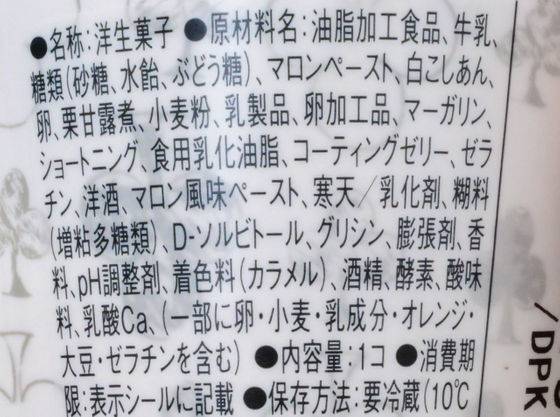 ●名称:洋生菓子 ●原材料名:油脂加工食品、牛乳、
糖類(砂糖、水飴、ぶどう糖)、マロンペースト、白こしあん、
卵、栗甘露煮、小麦粉、乳製品、卵加工品、マーガリン、
ショートニング、食用乳化油脂、コーティングゼリー、ゼラ
チン、洋酒、マロン風味ペースト、寒天/乳化剤、糊料
(増粘多糖類)、D-ソルビトール、グリシン、膨張剤、香
料、pH調整剤、着色料(カラメル)、酒精、酵素、酸味
料、乳酸Ca、(一部に卵・小麦・乳成分・オレンジ・
大豆・ゼラチンを含む) ●内容量:1コ ●消費期
限:表示シールに記載 ●保存方法:要冷蔵(10℃
/DPK